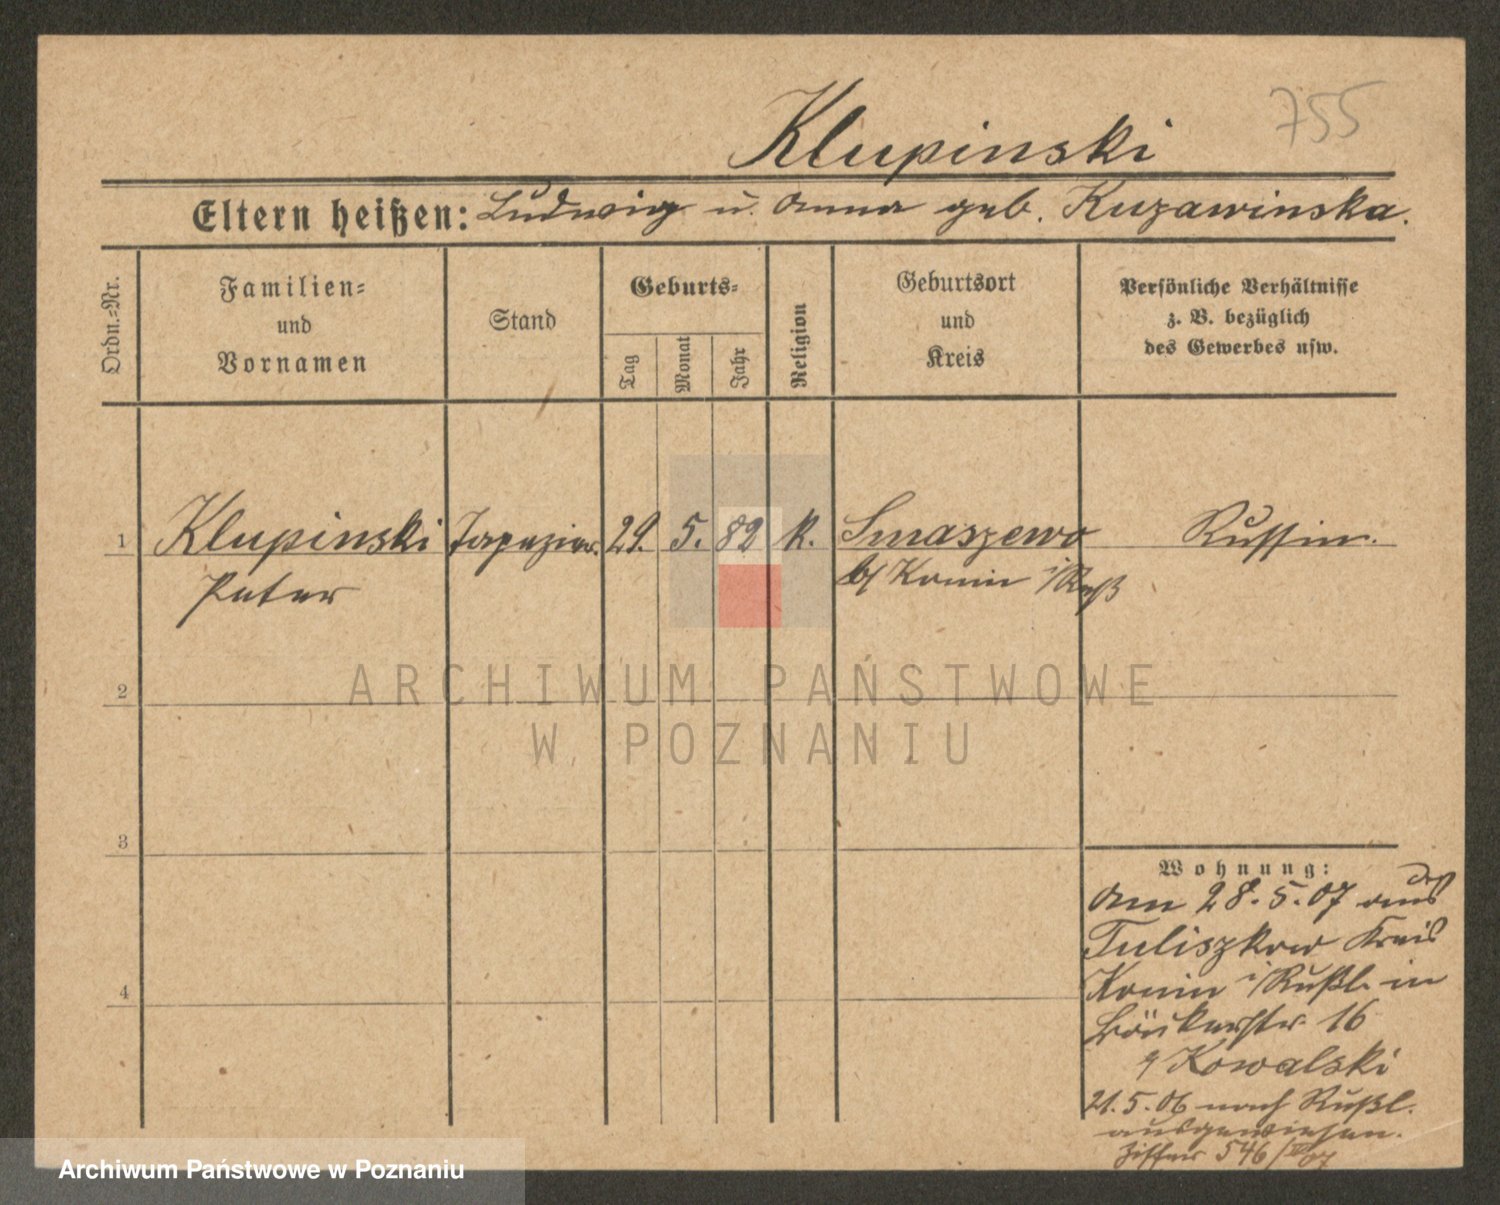 755
Klupinski
Eltern heißen: Ludwig u. Anna geb. Kuzawinska.
Ordn.=Nr.
Familien=
und
Vornamen
Stand
Geburts=
Tag
Monat
Jahr
Religion
Geburtsort
und
Kreis
Persönliche Verhältnisse
z. B. bezüglich
des Gewerbes usw.
1 Klupinski Tapezier. 29. 5. 82 k. Smaszewo Russin.
Peter b/ Konin i/Ruß
2
ARCHIWUM PAŃSTWOWE
W POZNANIU
3
4
Wohnung:
Am 28.5.07 aus
Tuliszkow Kreis
Konin i/Rußl. in
Bäckerstr. 16
Kowalski
21.5.06 nach Rußl.
ausgewiesen.
Ziffer 546/
Archiwum Państwowe w Poznaniu